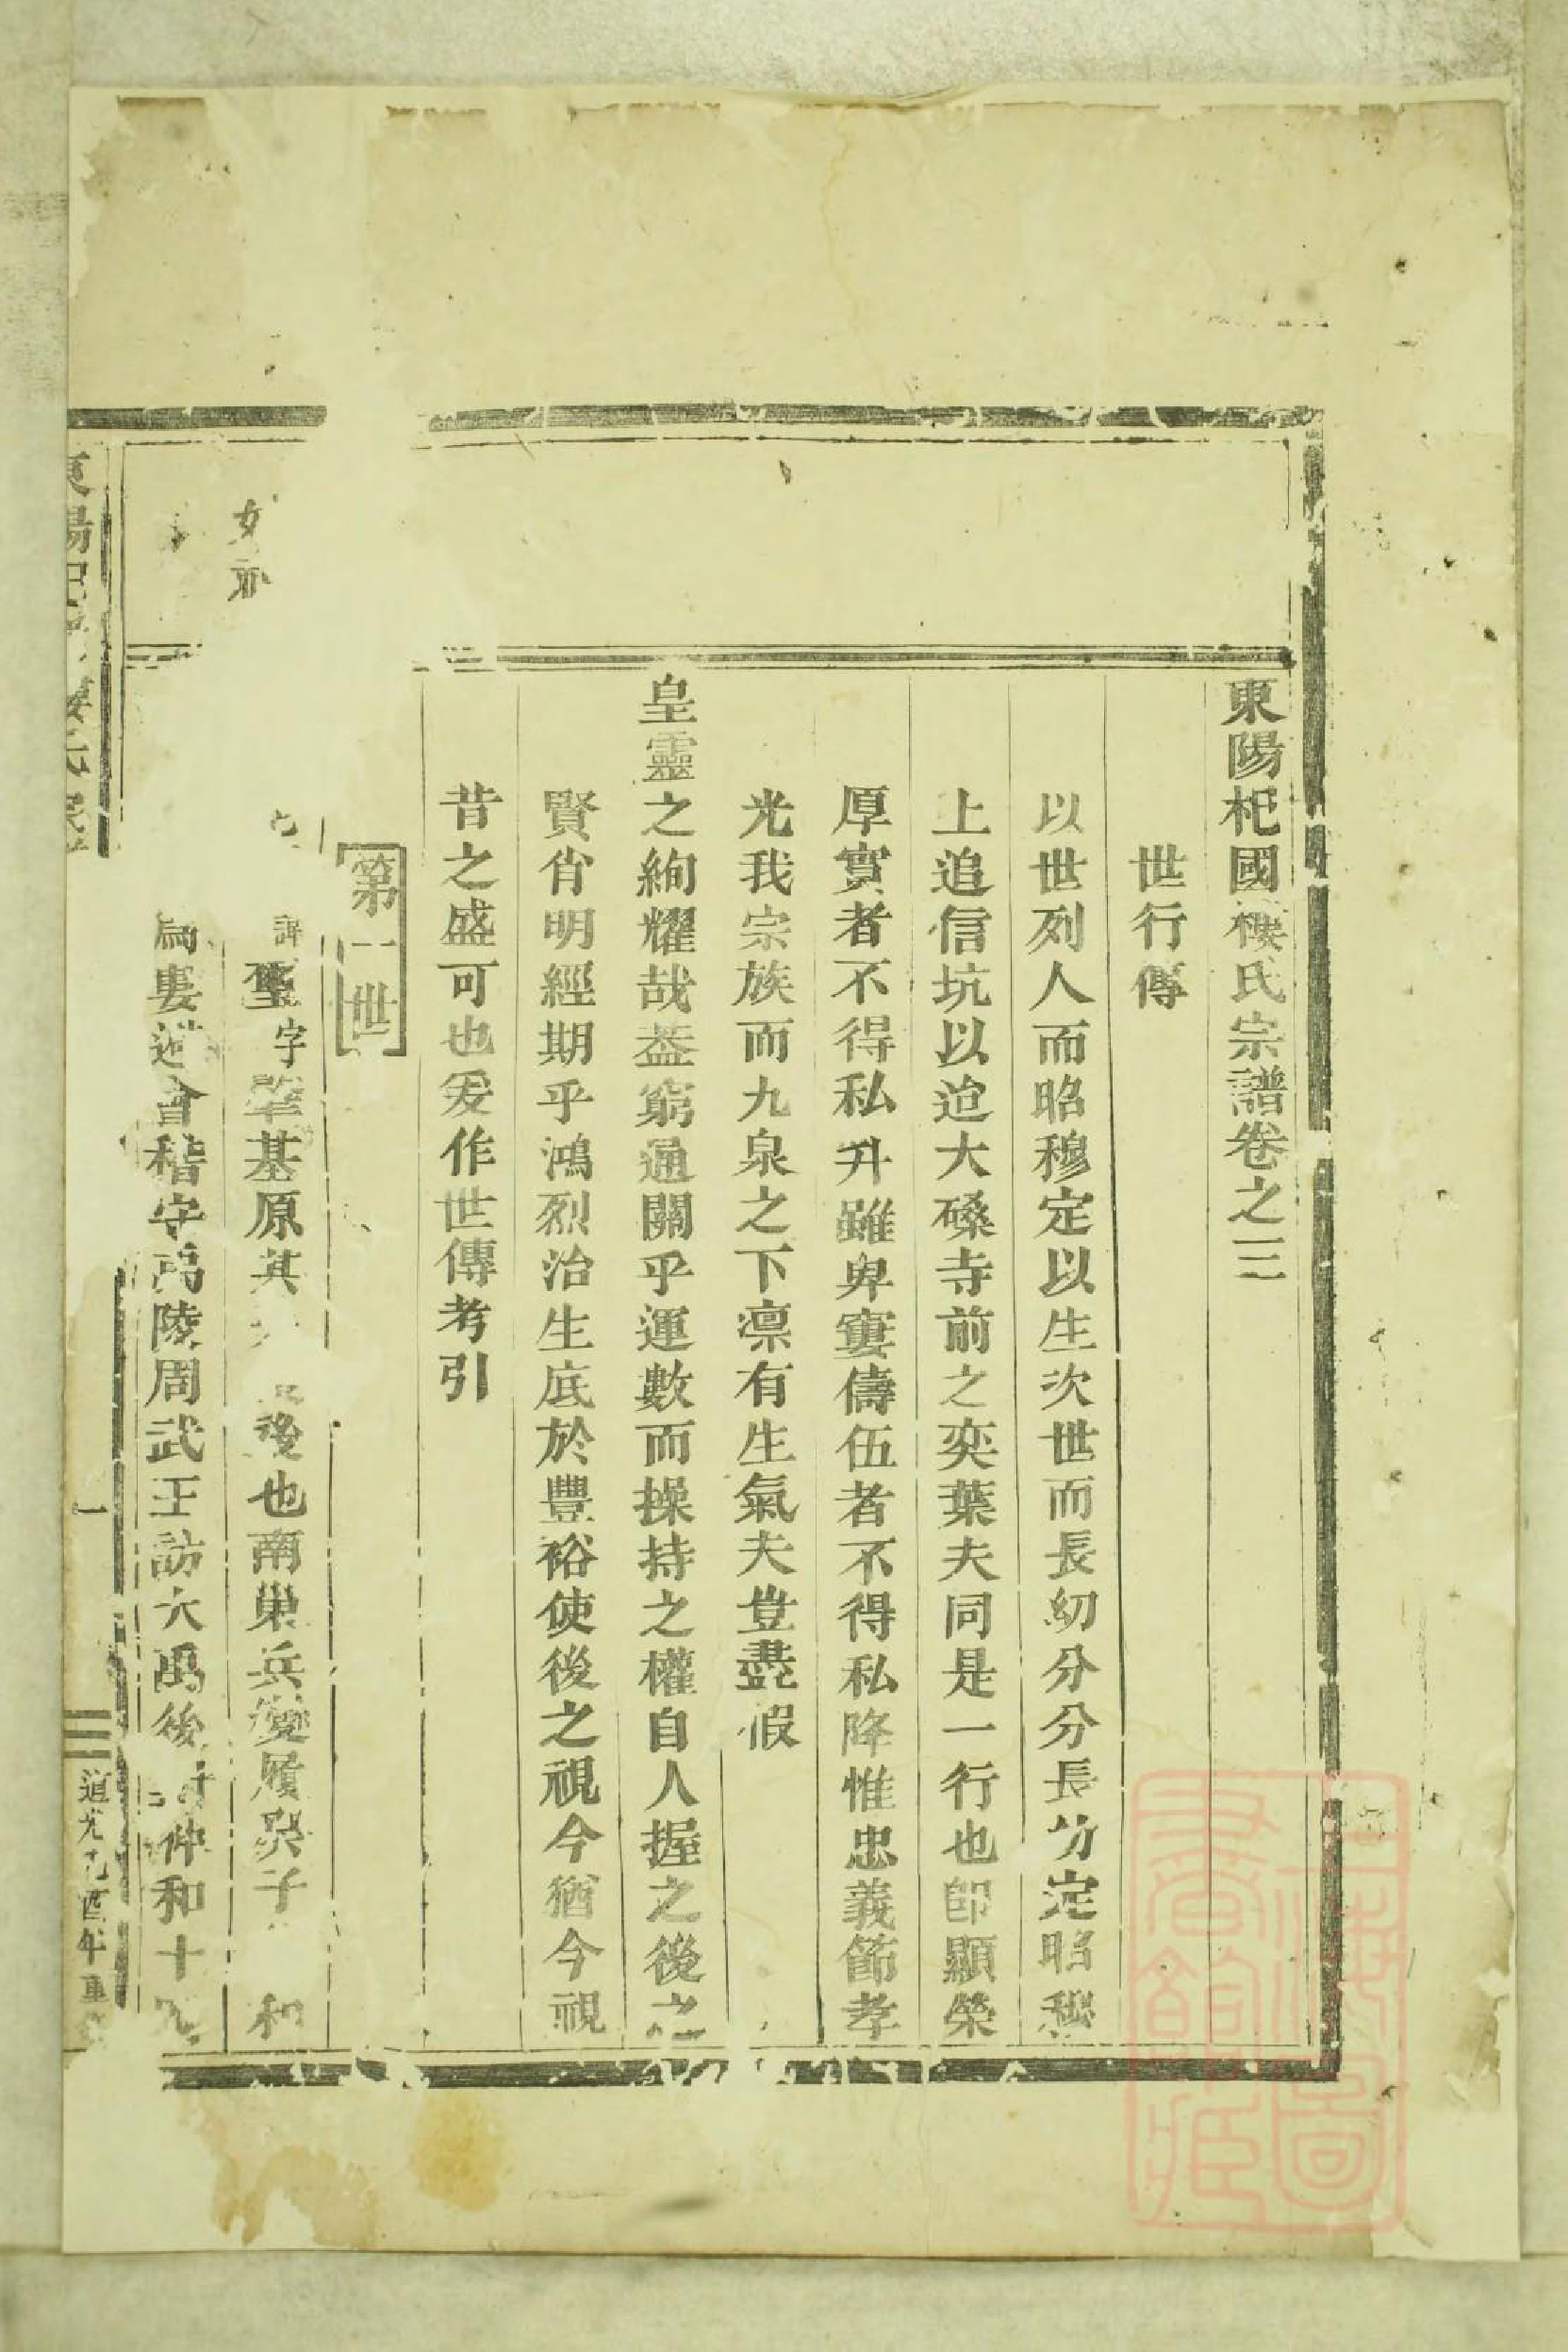 東陽杞國樓氏宗譜卷之三
世行傳
以世列人而昭穆定以生次世而長幼分分長幼定昭穆
上追信坑以迨大磉寺前之奕葉夫同是一行也卽顯榮
厚實者不得私升雖卑寠儔伍者不得私降惟忠義節孝
光我宗族而九泉之下凛有生氣夫豈盡假
皇靈之絢耀哉葢窮通關乎運數而操持之權自人握之後之
賢肖明經期乎鴻烈治生底於豐裕使後之視今猶今視
昔之盛可也爰作世傳考引
第一世
女亦
諱 字肇基原其 後也南巢兵變履癸子 和
婁 會稽守禹陵周武王訪大禹後 仲和十九
東陽杞 樓氏宗
一
道光己酉年重
上海圖書館藏